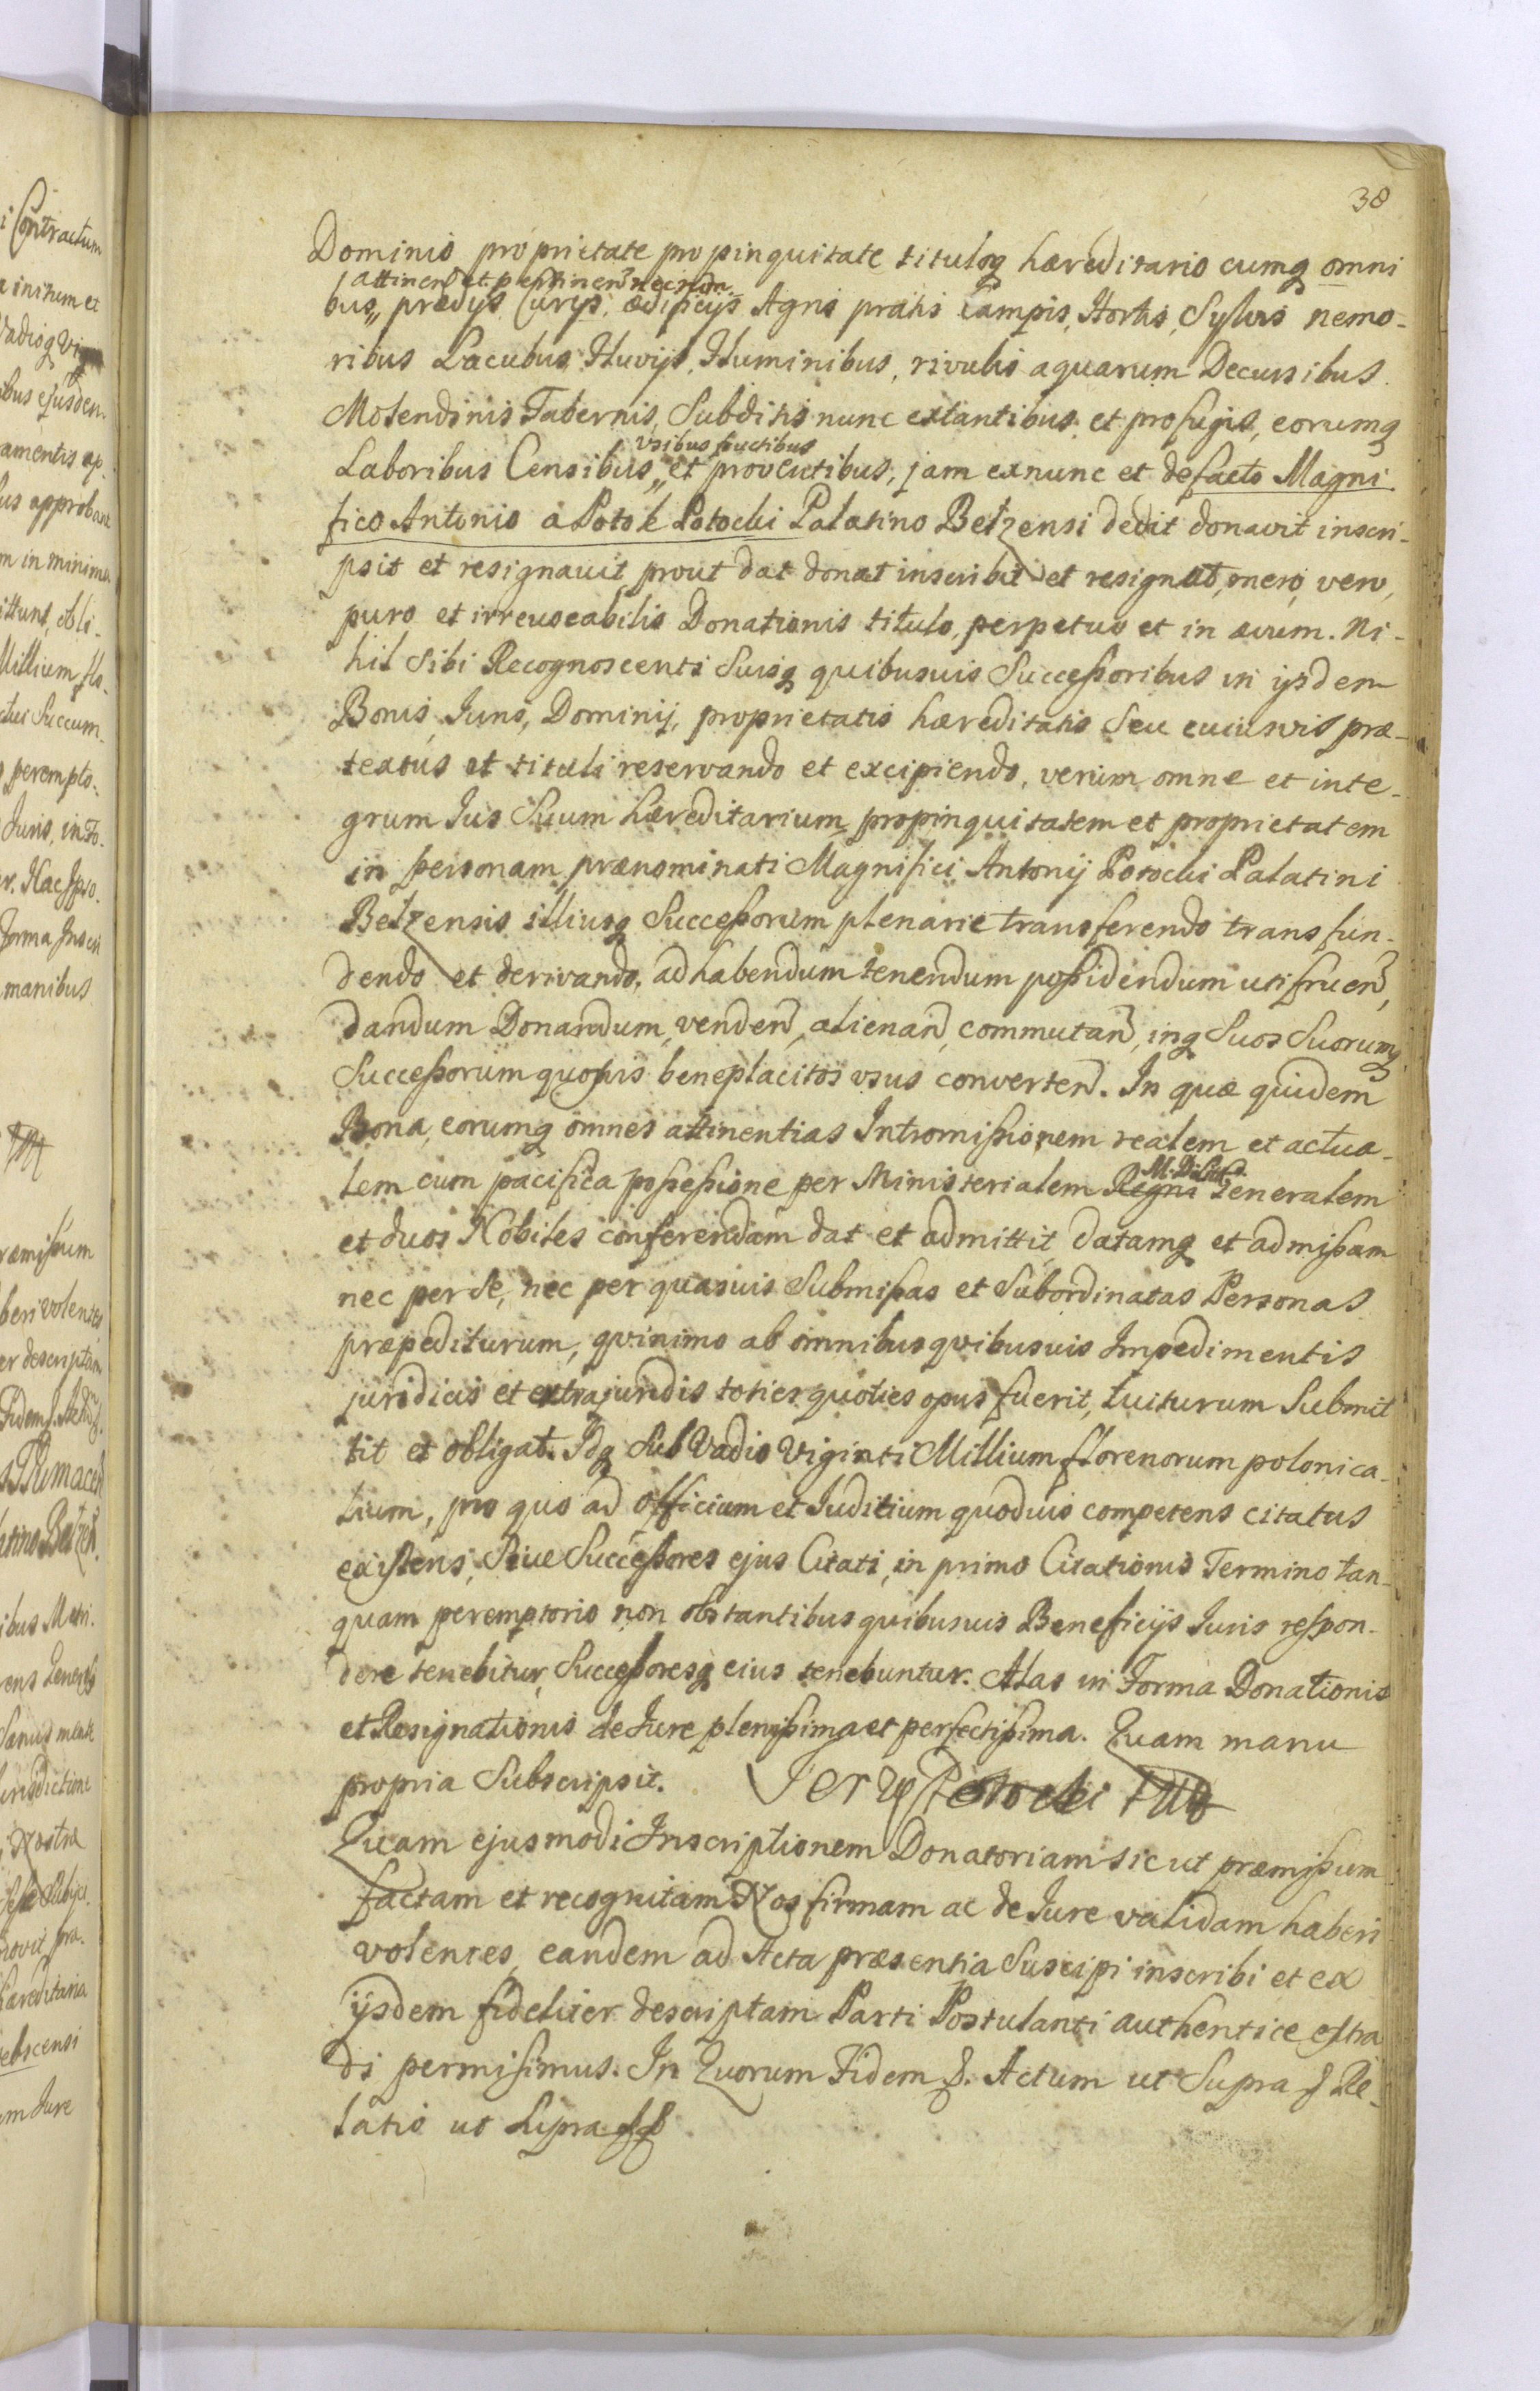 38
Dominio proprietate propinquitate tituloq hæreditario cumq omni
attinen et pertinen necnon
bus,, prædijs Curijs, ædificijs Agris pratis Campis, Hortis, Sylvis nemo-
ribus Lacubus Fluvijs, Fluminibus, rivulis aquarum Decursibus
Molendinis Tabernis, Subditis nunc extantibus et profugis, eorumq
Vsibus fructibus
Laboribus Censibus,, et proventibus, jam exnunc et defacto Magni
fico Antonio a Potok Potocki Palatino Betzensi dedit donavit inscri-
psit et resignavit prout dat donat inscribit et resignat, mero, vero,
puro et irrevocabilis Donationis titulo, perpetuo et in ævum. Ni-
hil Sibi Recognoscenti Suisq quibusuis Successoribus in ijsdem
Bonis Juris, Dominij, proprietatis hæreditatis Seu cuiusvis præ-
textus et tituli reservando et excipiendo, verum omne et inte-
grum Jus Suum hæreditarium propinquitatem et proprietatem
in personam prænominati Magnifici Antonij Potocki Palatini
Betzensis illiusq Successorum plenarie transferendo transfun-
dendo et derivando, ad habendum tenendum possidendum utifruen,
dandum Donandum, venden, alienan, commutan, inq Suos Suorumq
Successorum quosvis beneplacitos usus converten. In quæ quidem
Bona, eorumq omnes attinentias Intromissionem realem et actua-
lem cum pacifica possessione per Ministerialem Regni Generalem
et duos Nobiles conferendam dat et admittit, datamq et admissam
nec per se, nec per quasuis Submissas et Subordinatas Personas
præpediturum, qvinimo ab omnibus qvibusuis Impedimentis
juridicis et extrajuridis toties quoties opus fuerit, tuiturum Submit
tit et obligat. Idq Sub Vadio Viginti Millium florenorum polonica-
lium, pro quo ad Officium et Juditium quoduis competens citatus
existens, Siue Successores ejus Citati, in primo Citationis Termino tan-
quam peremptorio non obstantibus quibusuis Beneficijs Juris respon-
dere tenebitur, Successoresq eius tenebuntur. Alas in Forma Donationis
et Resignationis de Jure plenissima et perfectissima. Quam manu
propria Subscripsit. Jerzy Potocki
Quam ejusmodi Inscriptionem Donatoriam sic ut præmissum
factam et recognitam Nos firmam ac de Jure validam haberi
volentes, eandem ad Acta præsentia Suscipi inscribi et ex
ijsdem fideliter descriptam Parti Postulanti authentice extra
di permisimus. In Quorum Fidem &. Actum ut Supra & Re-
latio ut Supra